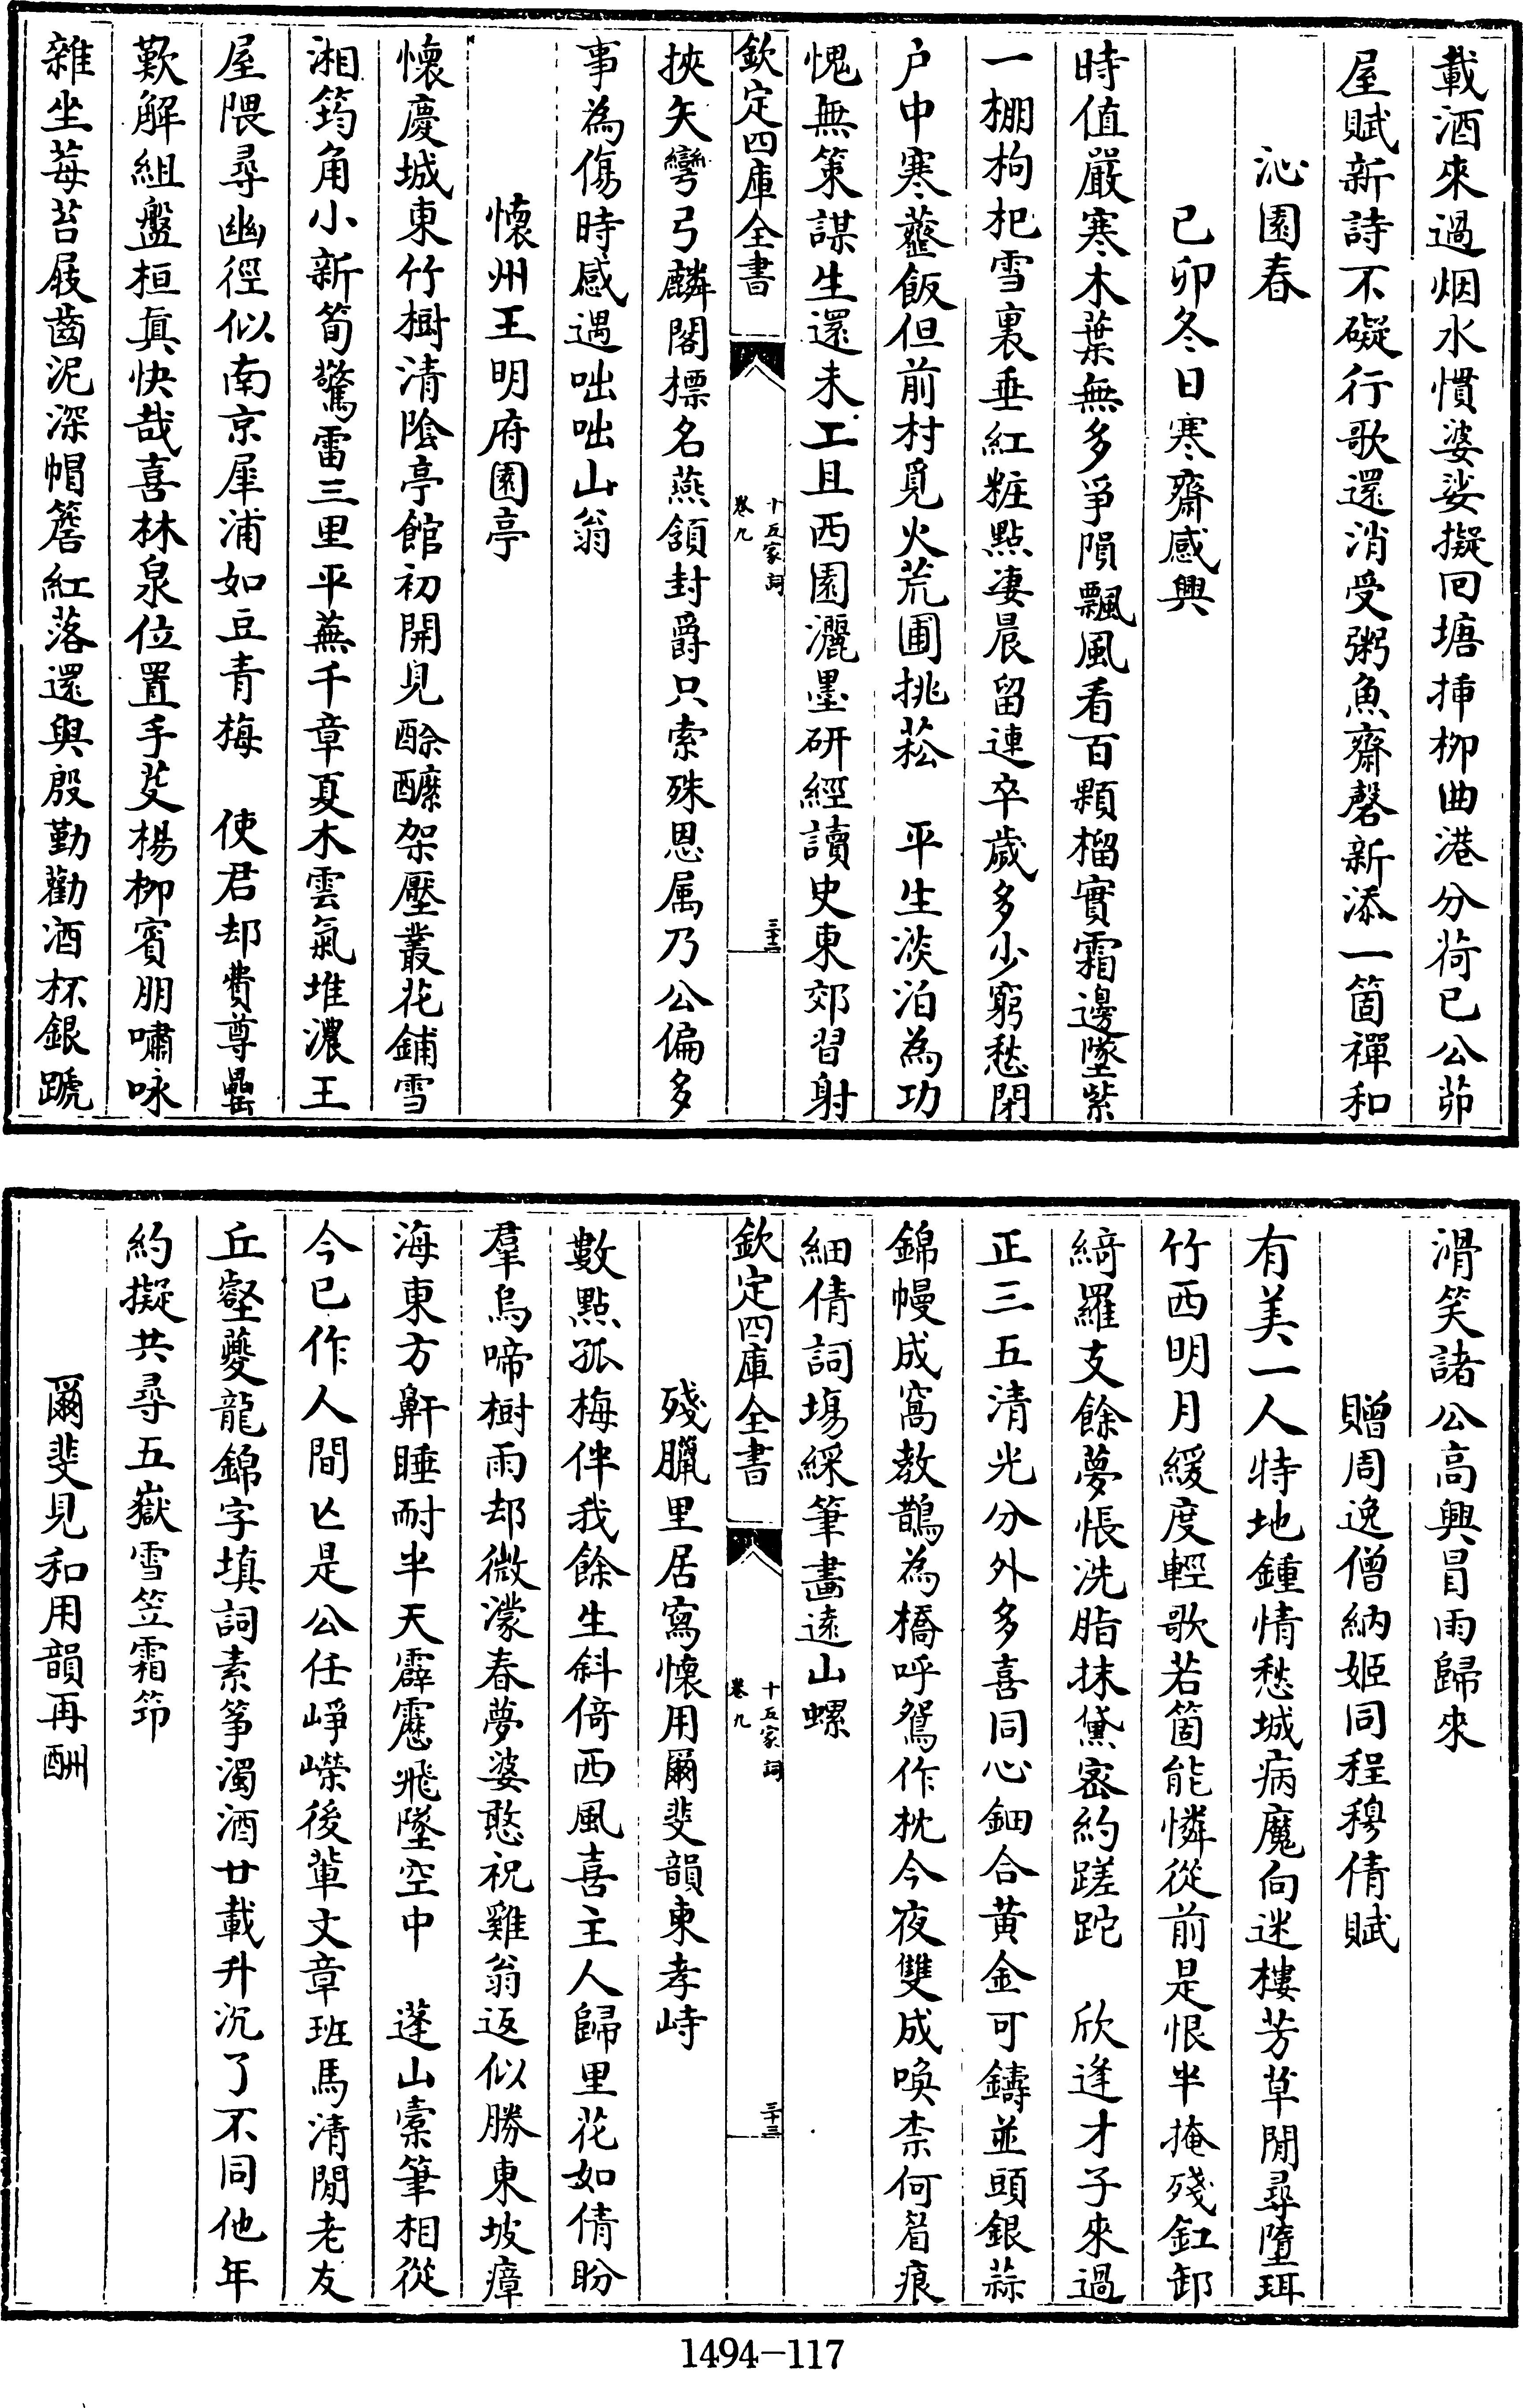 載酒來過烟水慣婆娑擬回塘揷柳曲港分荷已公茆
屋賦新詩不礙行歌還消受粥魚齋磬新添一箇禪和
沁園春
己卯冬日寒齋感興
時值嚴寒木葉無多爭隕飄風看百顆榴實霜邊墜紫
一棚枸杞雪裏垂紅粧點凄晨留連卒歲多少窮愁閉
户中寒虀飯但前村覓火荒圃挑菘　平生淡泊為功
愧無策謀生還未工且西園灑墨研經讀史東郊習射
欽定四庫全書
十五家詞
卷九
三十二
挾矢彎弓麟閣標名燕頷封爵只索殊恩属乃公偏多
事為傷時感遇咄咄山翁
懷州王明府園亭
懷慶城東竹樹清陰亭館初開見酴醾架壓叢花鋪雪
湘筠角小新筍驚雷三里平蕪千章夏木雲氣堆濃王
屋隈尋幽徑似南京犀浦如豆青梅　使君却費尊罍
歎解組盤桓真快哉喜林泉位置手芟楊柳賓朋嘯咏
雜坐莓苔屐齒泥深帽簷紅落還與殷勤勸酒杯銀蹏
滑笑諸公高興冒雨歸來
贈周逸僧納姬同程穆倩賦
有美一人特地鍾情愁城病魔向迷樓芳草閒尋墮珥
竹西明月緩度輕歌若箇能憐從前是恨半掩殘釭卸
綺羅支餘夢悵洗脂抹黛密約蹉跎　欣逢才子來過
正三五清光分外多喜同心鈿合黃金可鑄並頭銀蒜
錦幔成窩教鵲為橋呼鴛作枕今夜雙成喚柰何眉痕
細倩詞塲綵筆畫遠山螺
欽定四庫全書
十五家詞
卷九
三十三
殘臘里居寫懷用爾斐韻柬孝峙
數點孤梅伴我餘生斜倚西風喜主人歸里花如倩盼
羣烏啼樹雨却微濛春夢婆憨祝雞翁返似勝東坡瘴
海東方鼾睡耐半天霹靂飛墜空中　蓬山槖筆相從
今已作人間亡是公任崢嶸後輩文章班馬清閒老友
丘壑夔龍錦字填詞素箏濁酒廿載升沉了不同他年
約擬共尋五嶽雪笠霜笻
爾斐見和用韻再酬
1494-117